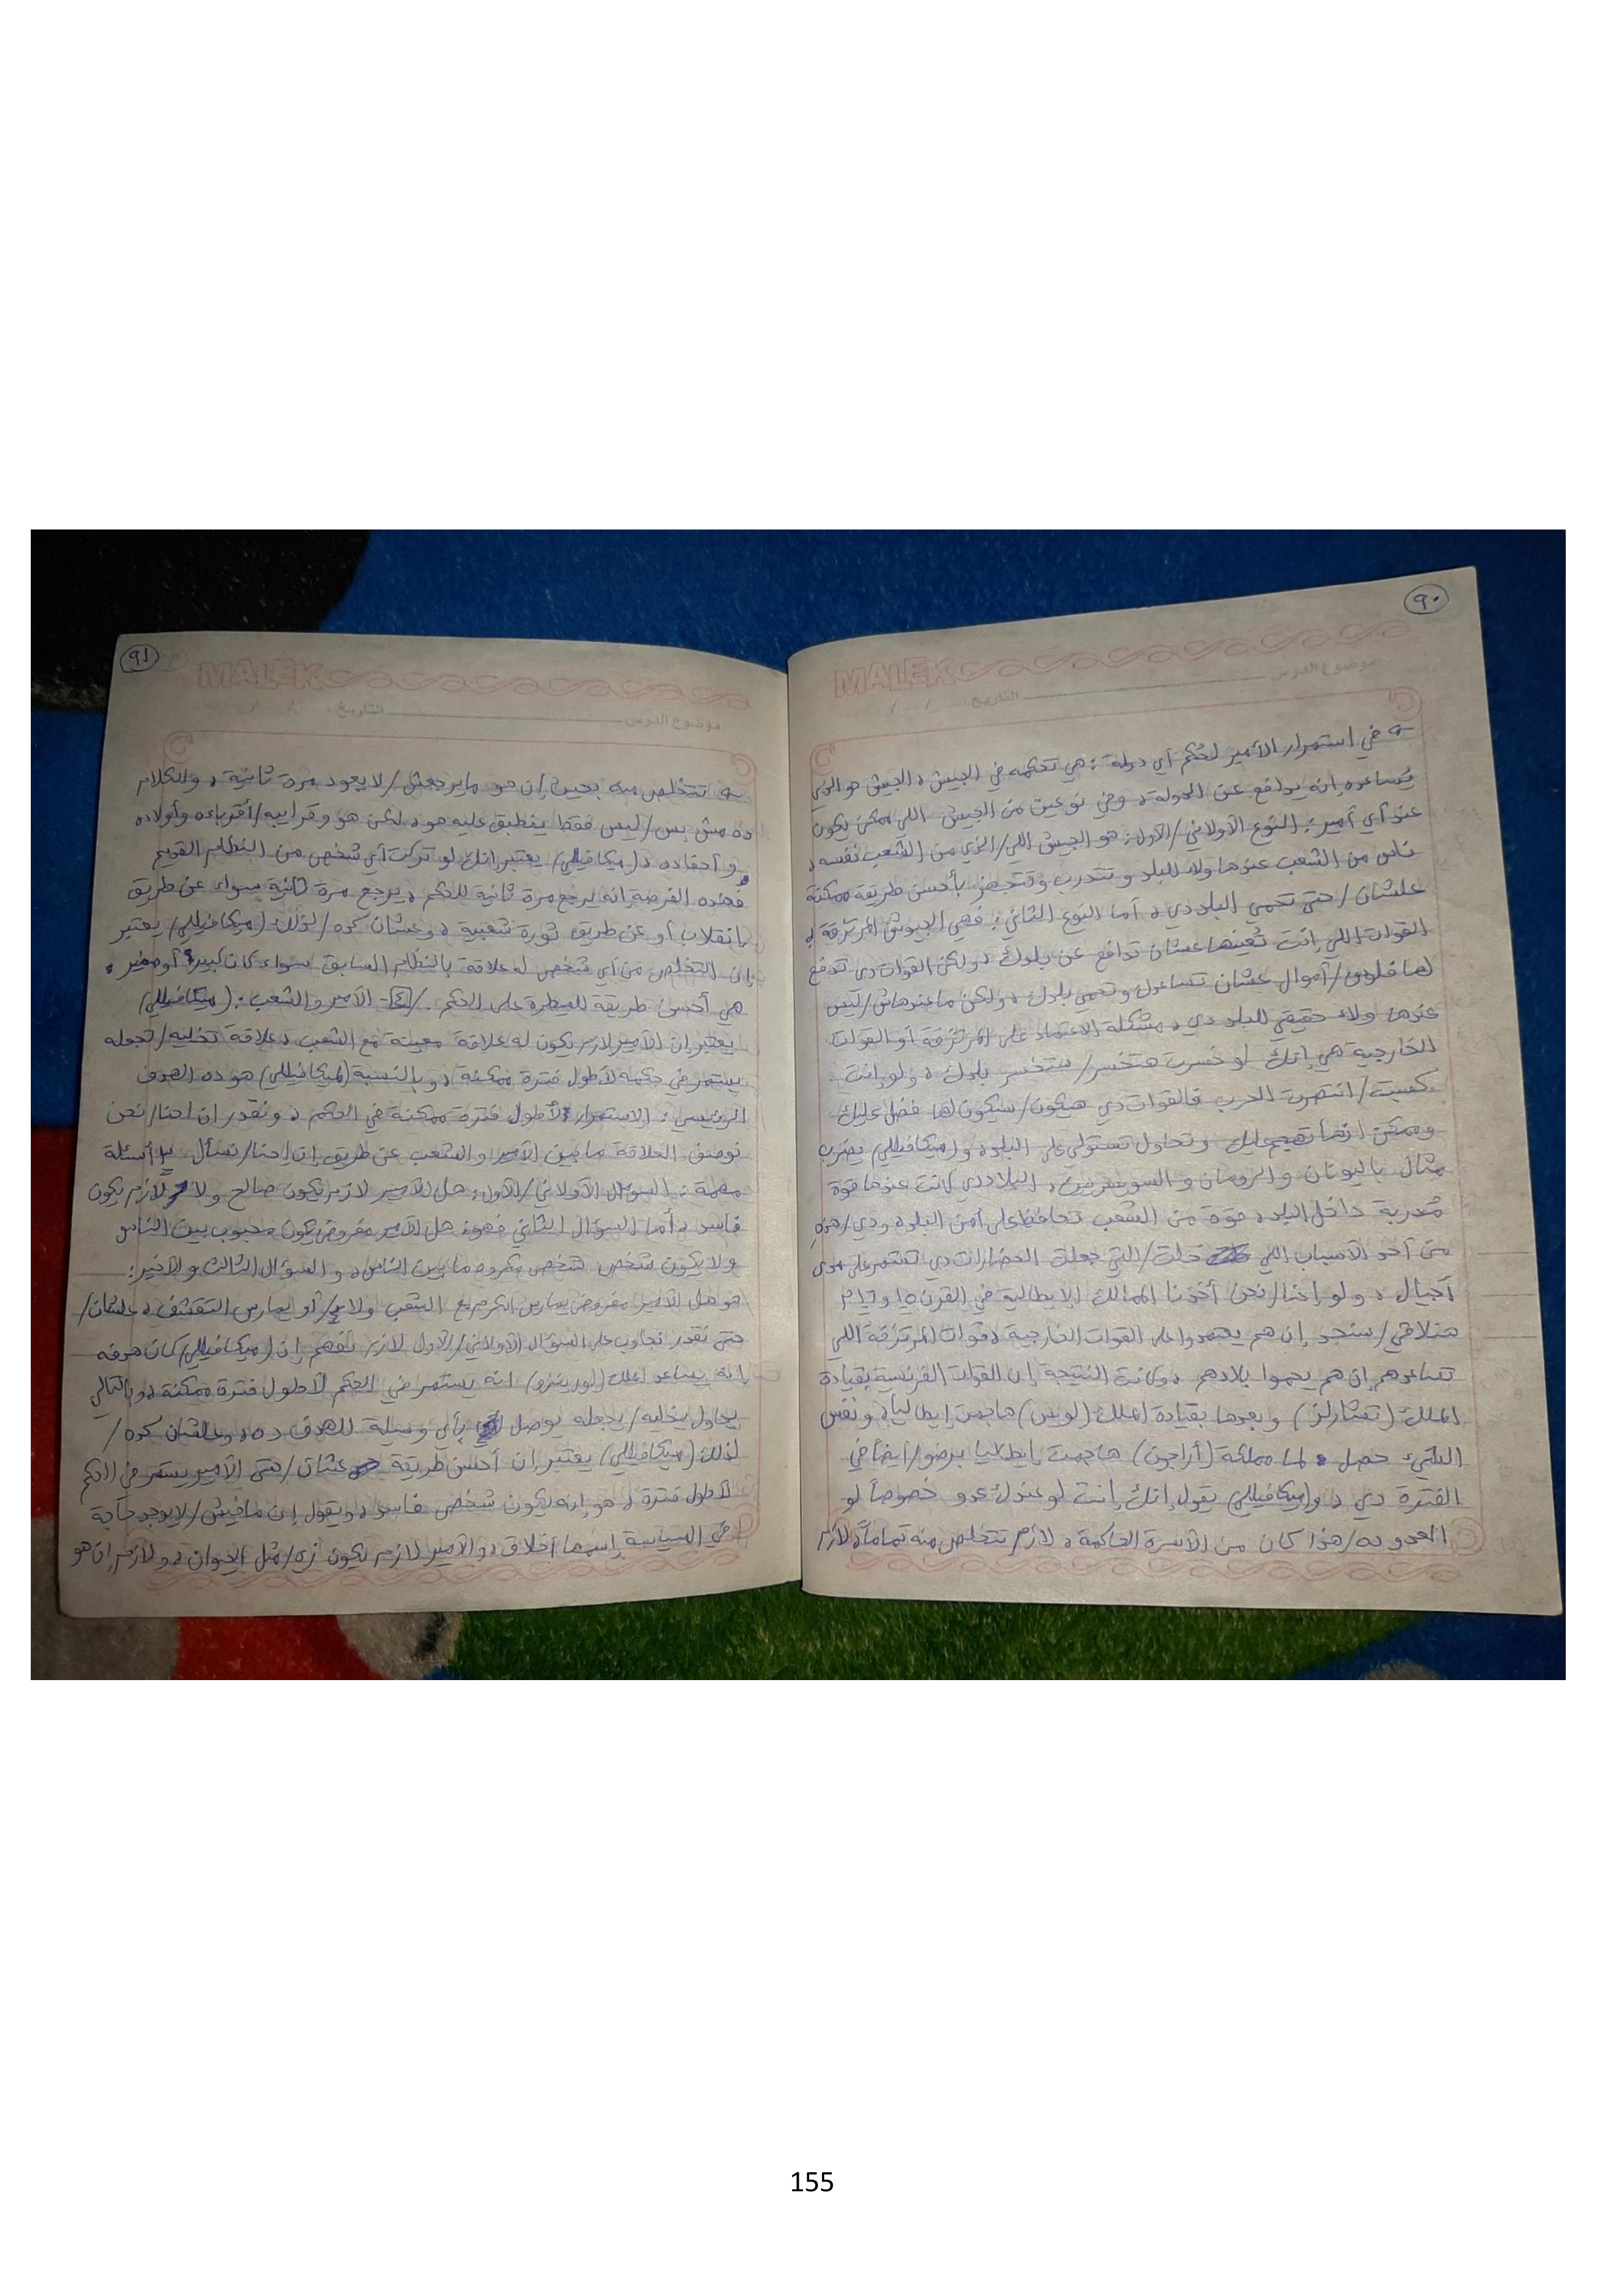 ٩٠
MALEK
موضوع الدرس
التاريخ: / /
في استمرار الأمير لحُكم أي دولة: هي تحكمه في الجيش، الجيش هو الذي
يُساعده إنه يدافع عن الدولة، وفي نوعين من الجيش اللي ممكن يكون
عند أي أمير: النوع الأولاني/الأول: هو الجيش اللي/الذي من الشعب نفسه،
ناس من الشعب عندها ولاء للبلد وتتدرب وتتجهز بأحسن طريقة ممكنة
علشان/حتى تحمي البلد دي، أما النوع الثاني: فهي الجيوش المرتزقة،
القوات اللي إنت تُعينها عشان تدافع عن بلدك، ولكن القوات دي تدفع
لها فلوس/أموال عشان تساعدك وتحمي بلدك، ولكن ماعندهاش/ليس
عندها ولاء حقيقي للبلد دي، مشكلة الاعتماد على المرتزقة أو القوات
الخارجية هي إنك لو خسرت هتخسر/ستخسر بلدك، ولو إنت
كسبت/انتصرت الحرب فالقوات دي هيكون/سيكون لها فضل عليك
وممكن إنها تهجم عليك وتحاول تستولي على البلد، و(ميكافيللي) يضرب
مثال باليونان والرومان والسويسريين، البلاد دي كانت عندها قوة
مُدربة داخل البلد، قوة من الشعب تحافظ على أمن البلد، ودي/هذه
من أحد الأسباب اللي خلت/التي جعلت الحضارات دي تستمر على مدى
أجيال، ولو إحنا/نحن أخدنا الممالك الإيطالية في القرن ١٥ و١٦م
هنلاقي/سنجد إن هم يعتمدوا على القوات الخارجية، قوات المرتزقة اللي
تساعدهم إن هم يحموا بلادهم، وكانت النتيجة إن القوات الفرنسية بقيادة
الملك (تشارلز) وبعدها بقيادة الملك (لويس) هاجمت إيطاليا، ونفس
الشيء حصل لما مملكة (أراجون) هاجمت إيطاليا برضو/أيضاً في
الفترة دي، و(ميكافيللي) يقول إنك إنت لو عندك عدو خصوصاً لو
العدو ده/هذا كان من الأسرة الحاكمة، لازم تتخلص منه تماماً، لازم
٩١
MALEK
موضوع الدرس
التاريخ: / /
تتخلص منه بحيث إن هو مايرجعش/لا يعود مرة ثانية، والكلام
ده مش بس/ليس فقط ينطبق عليه هو، لكن هو وقرايبه/أقرباءه وأولاده
وأحفاده، (ميكافيللي) يعتبر إنك لو تركت أي شخص من النظام القديم
فهذه الفرصة إنه يرجع مرة ثانية للحكم، يرجع مرة ثانية سواء عن طريق
انقلاب أو عن طريق ثورة شعبية، وعشان كده/لذلك (ميكافيللي) يعتبر
إن التخلص من أي شخص له علاقة بالنظام السابق سواء كان كبير أو صغير،
هي أحسن طريقة للسيطرة على الحكم. /٤- الأمير والشعب: (ميكافيللي)
يعتبر إن الأمير لازم يكون له علاقة معينة مع الشعب، علاقة تخليه/تجعله
يستمر في حكمه لأطول فترة ممكنة، وبالنسبة (لميكافيللي) هو ده الهدف
الرئيسي: الاستمرار لأطول فترة ممكنة في الحكم، ونقدر إن احنا/نحن
نوصف العلاقة ما بين الأمير والشعب عن طريق إن إحنا/نسأل ٣ أسئلة
مهمة: السؤال الأولاني/الأول: هل الأمير لازم يكون صالح ولا لازم يكون
فاسد، أما السؤال الثاني فهو: هل الأمير مفروض يكون محبوب بين الناس
ولا يكون شخص مكروه ما بين الناس، والسؤال الثالث والأخير:
هو هل الأمير مفروض يمارس الكرم مع الشعب ولا/أو يمارس التقشف، علشان/
حتى نقدر نجاوب على السؤال الأولاني/الأول لازم نفهم إن (ميكافيللي) كان هدفه
إنه يساعد الملك (لورينزو) إنه يستمر في الحكم لأطول فترة ممكنة، وبالتالي
يحاول يخليه/يجعله يوصل بأي وسيلة للهدف ده، وعلشان كده/
لذلك (ميكافيللي) يعتبر إن أحسن طريقة عشان/حتى الأمير يستمر في الحكم
لأطول فترة، هو إنه يكون شخص فاسد، ويقول إن مافيش/لا يوجد حاجة
في السياسة إسمها أخلاق، والأمير لازم يكون زي/مثل الحيوان، ولازم إن هو
155